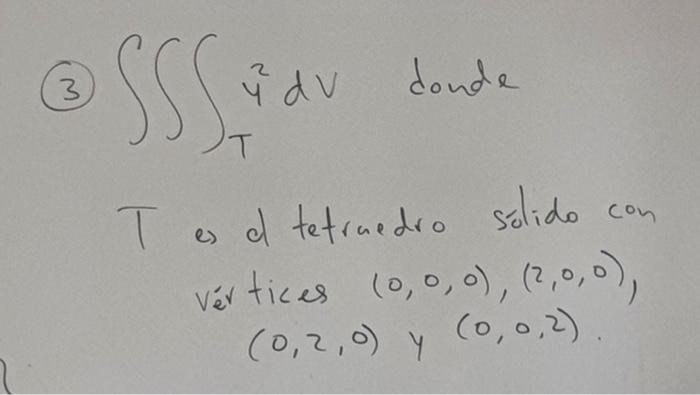 ③ ∭_T y² dV donde
T es el tetraedro sólido con
vértices (0,0,0), (2,0,0),
(0,2,0) y (0,0,2).